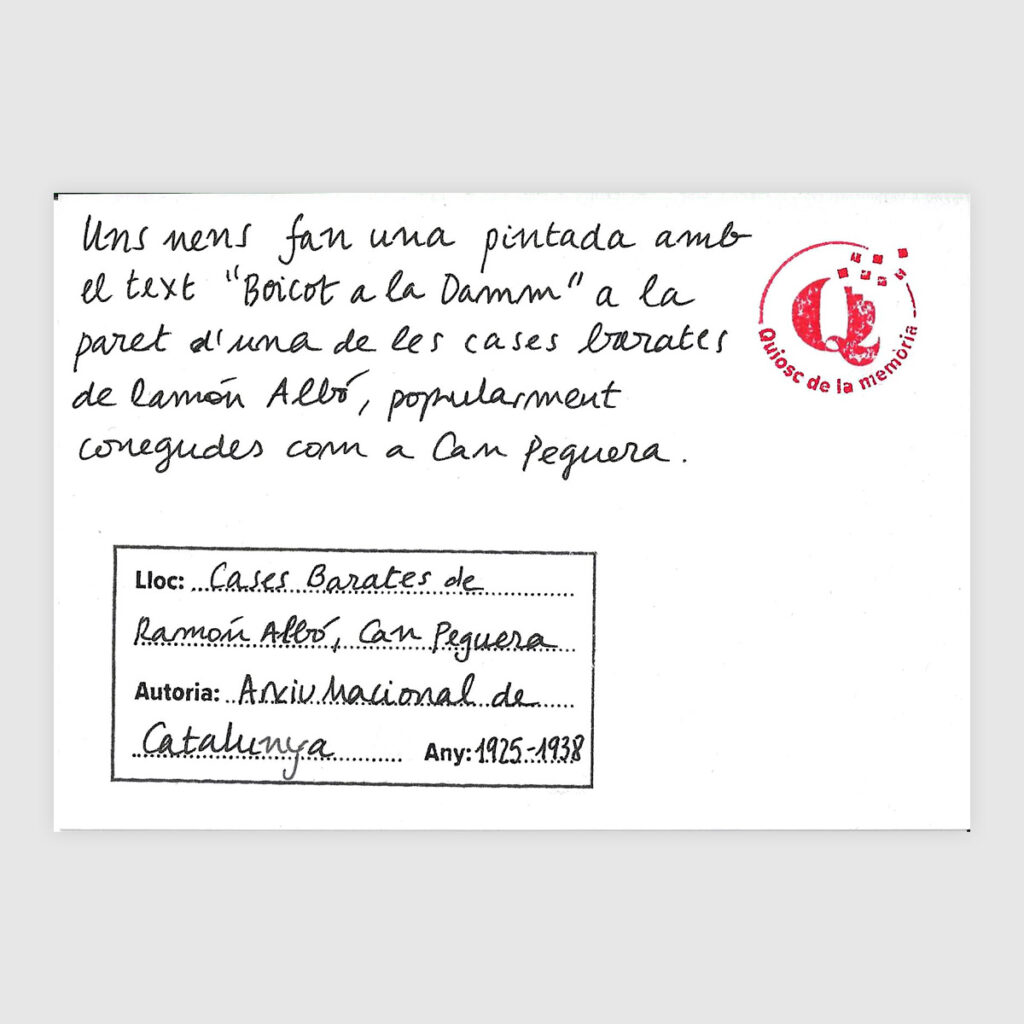 Uns nens fan una pintada amb
el text "Boicot a la Damm" a la
paret d'una de les cases barates
de Ramón Albó, popularment
conegudes com a Can Peguera.
Quiosc de la memòria
Lloc: Cases Barates de
Ramón Albó, Can Peguera
Autoria: Arxiu Nacional de
Catalunya Any: 1925-1938